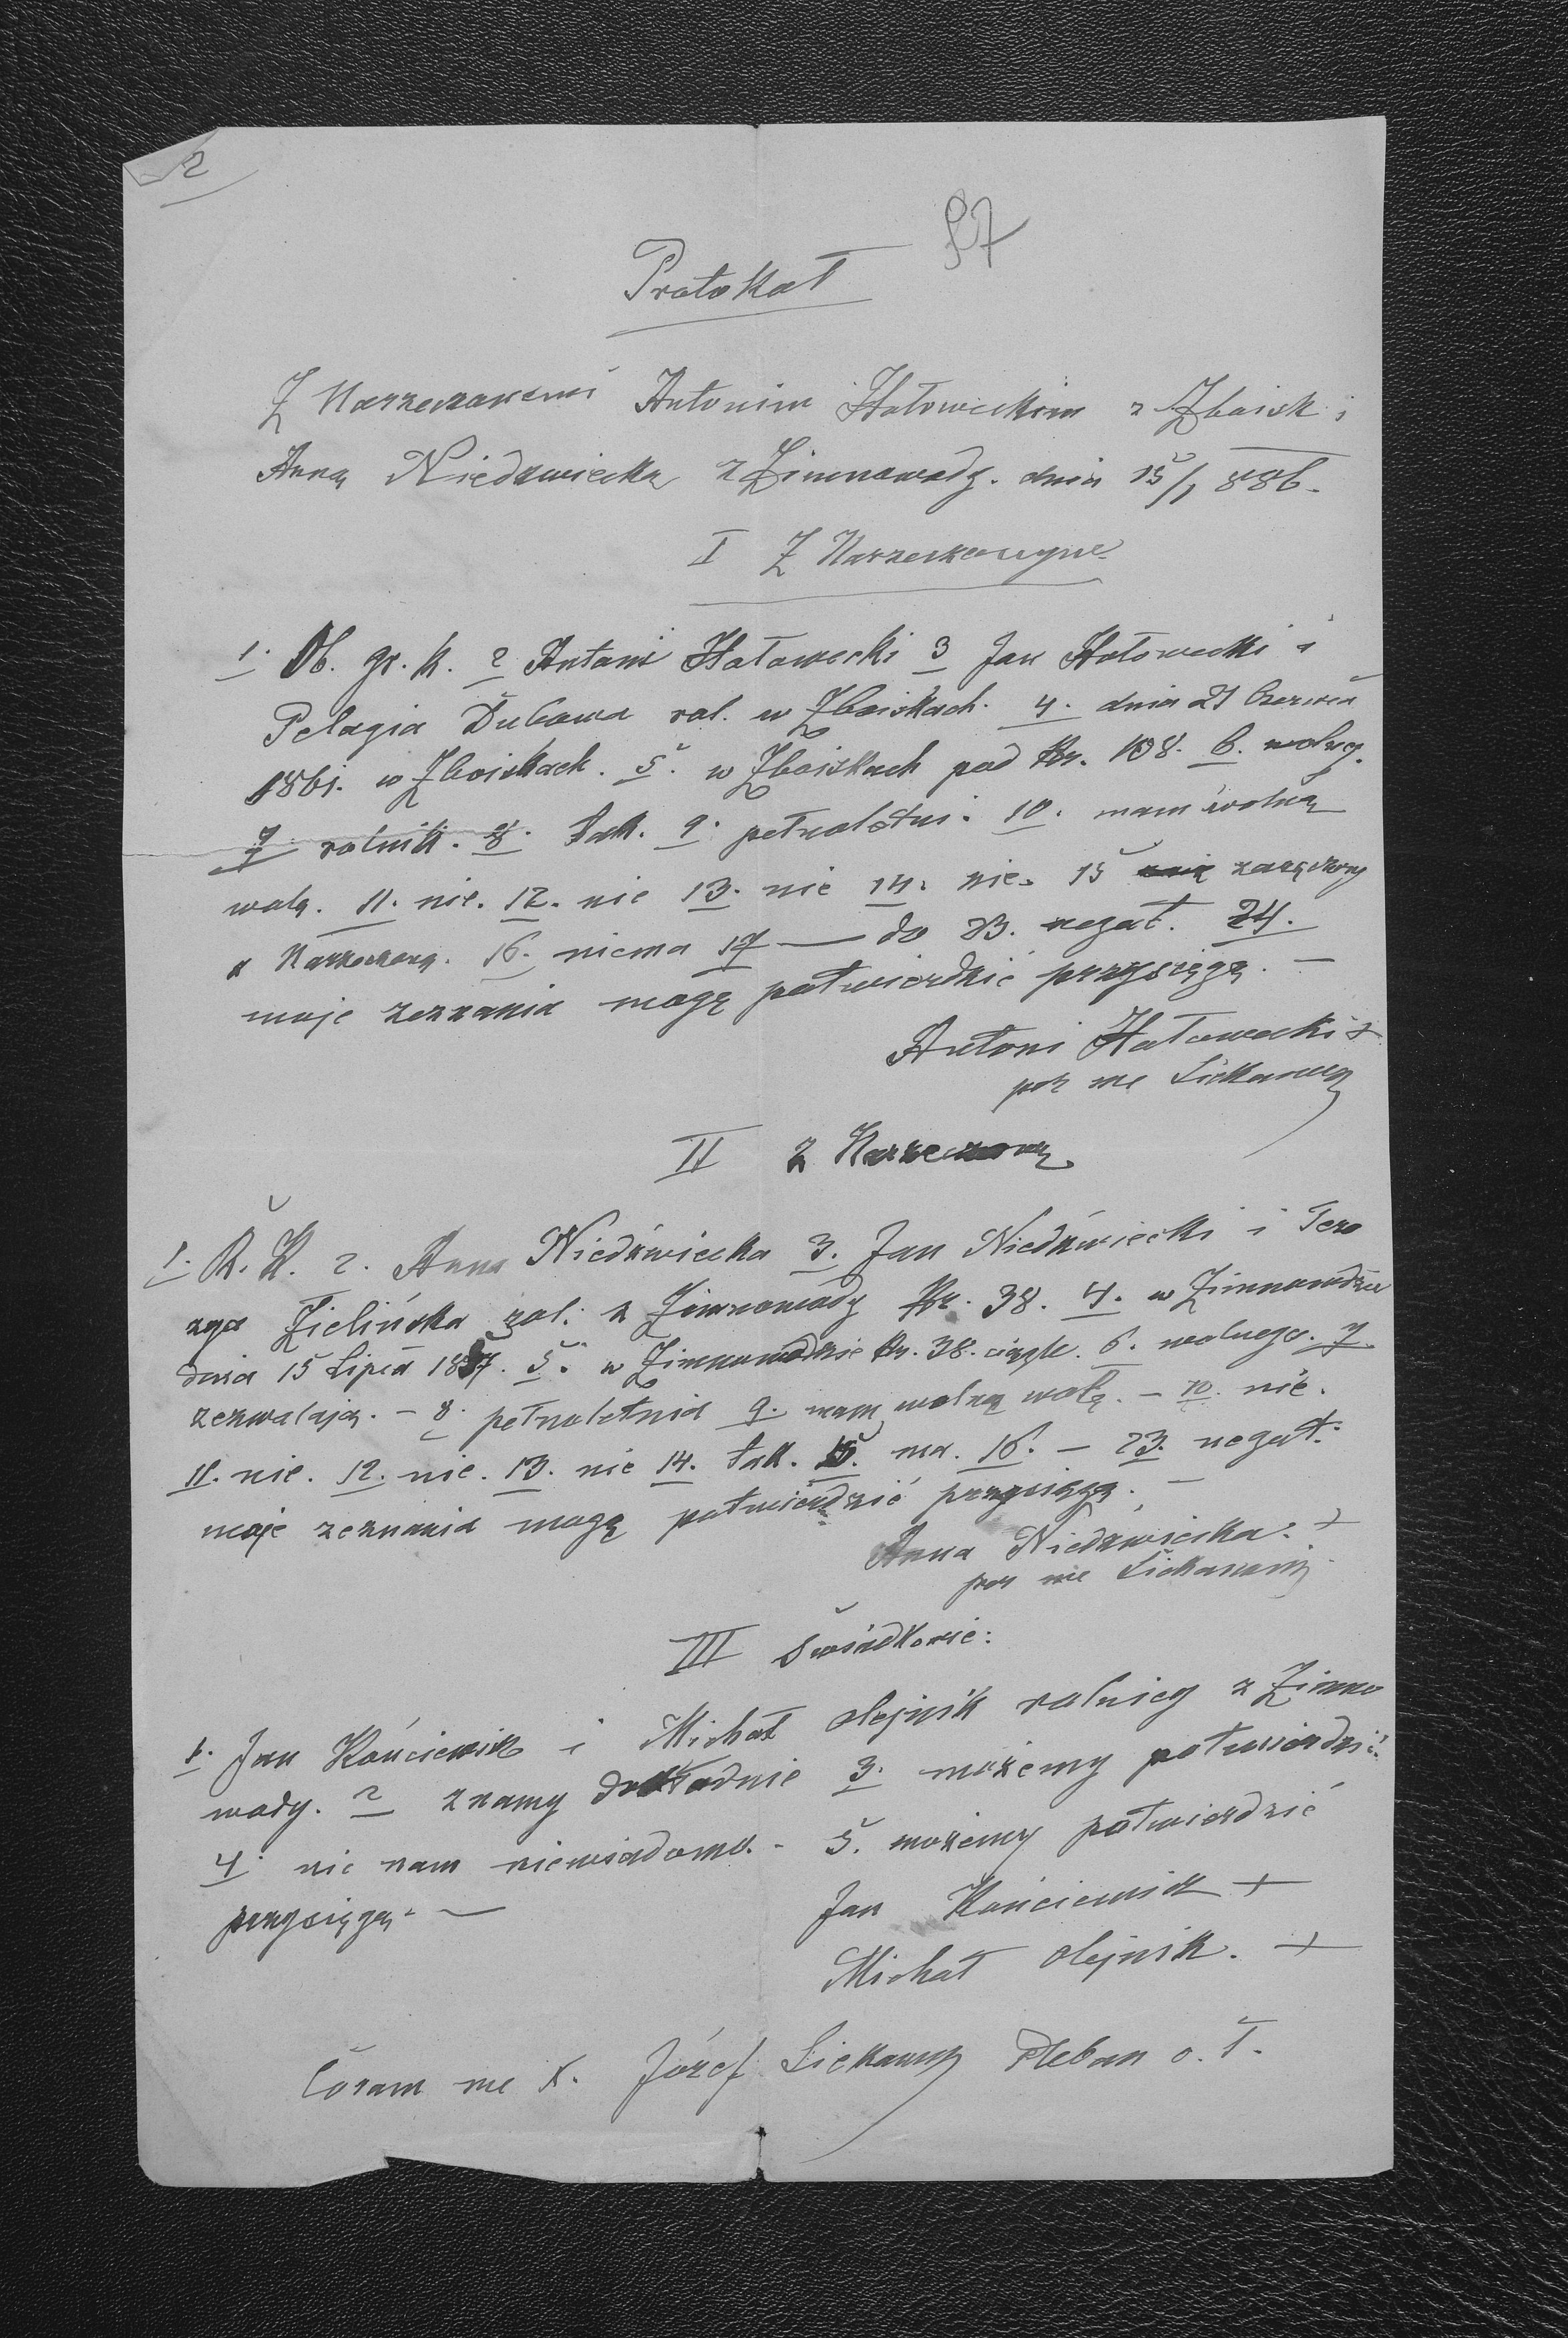 2
97
Protokoł
Z Narzeczonemi Antonim Hołoweckim z Zboisk i
Anną Niedzwiecką z Zimnowody. dnia 15/1 886.
I Z Narzeczonym
1. Ob. gr. k. 2 Antoni Hołowecki 3 Jan Hołowecki i
Pelagia Dubowa rol. w Zboiskach. 4. dnia 21 Czerwca
1861. w Zboiskach. 5. w Zboiskach pod Nr. 108. 6. wolny.
7. rolnik. 8. tak. 9. pełnoletni. 10. mam wolną
wolą. 11. nie. 12. nie 13. nie 14. nie. 15 zaręczony
z Narzeczoną. 16. niema 17 — do 23. negat. 24.
moje zeznania mogę potwierdzić przysięgą. —
Antoni Hołowecki +
prz me Sickanny
II Z Narzeczoną
1. R. K. 2. Anna Niedźwiecka 3. Jan Niedźwiecki i Tere
zya Zielińska rol. z Zimnowody Nr. 38. 4. w Zimnowodzie
dnia 15 Lipca 1857. 5. w Zimnowodzie Nr. 38. ciągle. 6. wolnego. 7.
zezwalają. — 8. pełnoletnia 9. mam wolną wolą. — 10. nie.
11. nie. 12. nie. 13. nie 14. tak. 15. ma. 16. — 23. negat.
moje zeznania mogę potwierdzić przysięgą. —
Anna Niedźwiecka. +
prz me Sickanny
III Swiadkowie:
1. Jan Kończewicz i Michał Olejnik rolnicy z Zimno
wody. 2 znamy dokładnie 3. możemy potwierdzić.
4. nic nam niewiadomo. — 5. możemy potwierdzić
przysięgą. —
Jan +
Michał Olejnik. +
Coram me X. Józef Pleban o. ł.